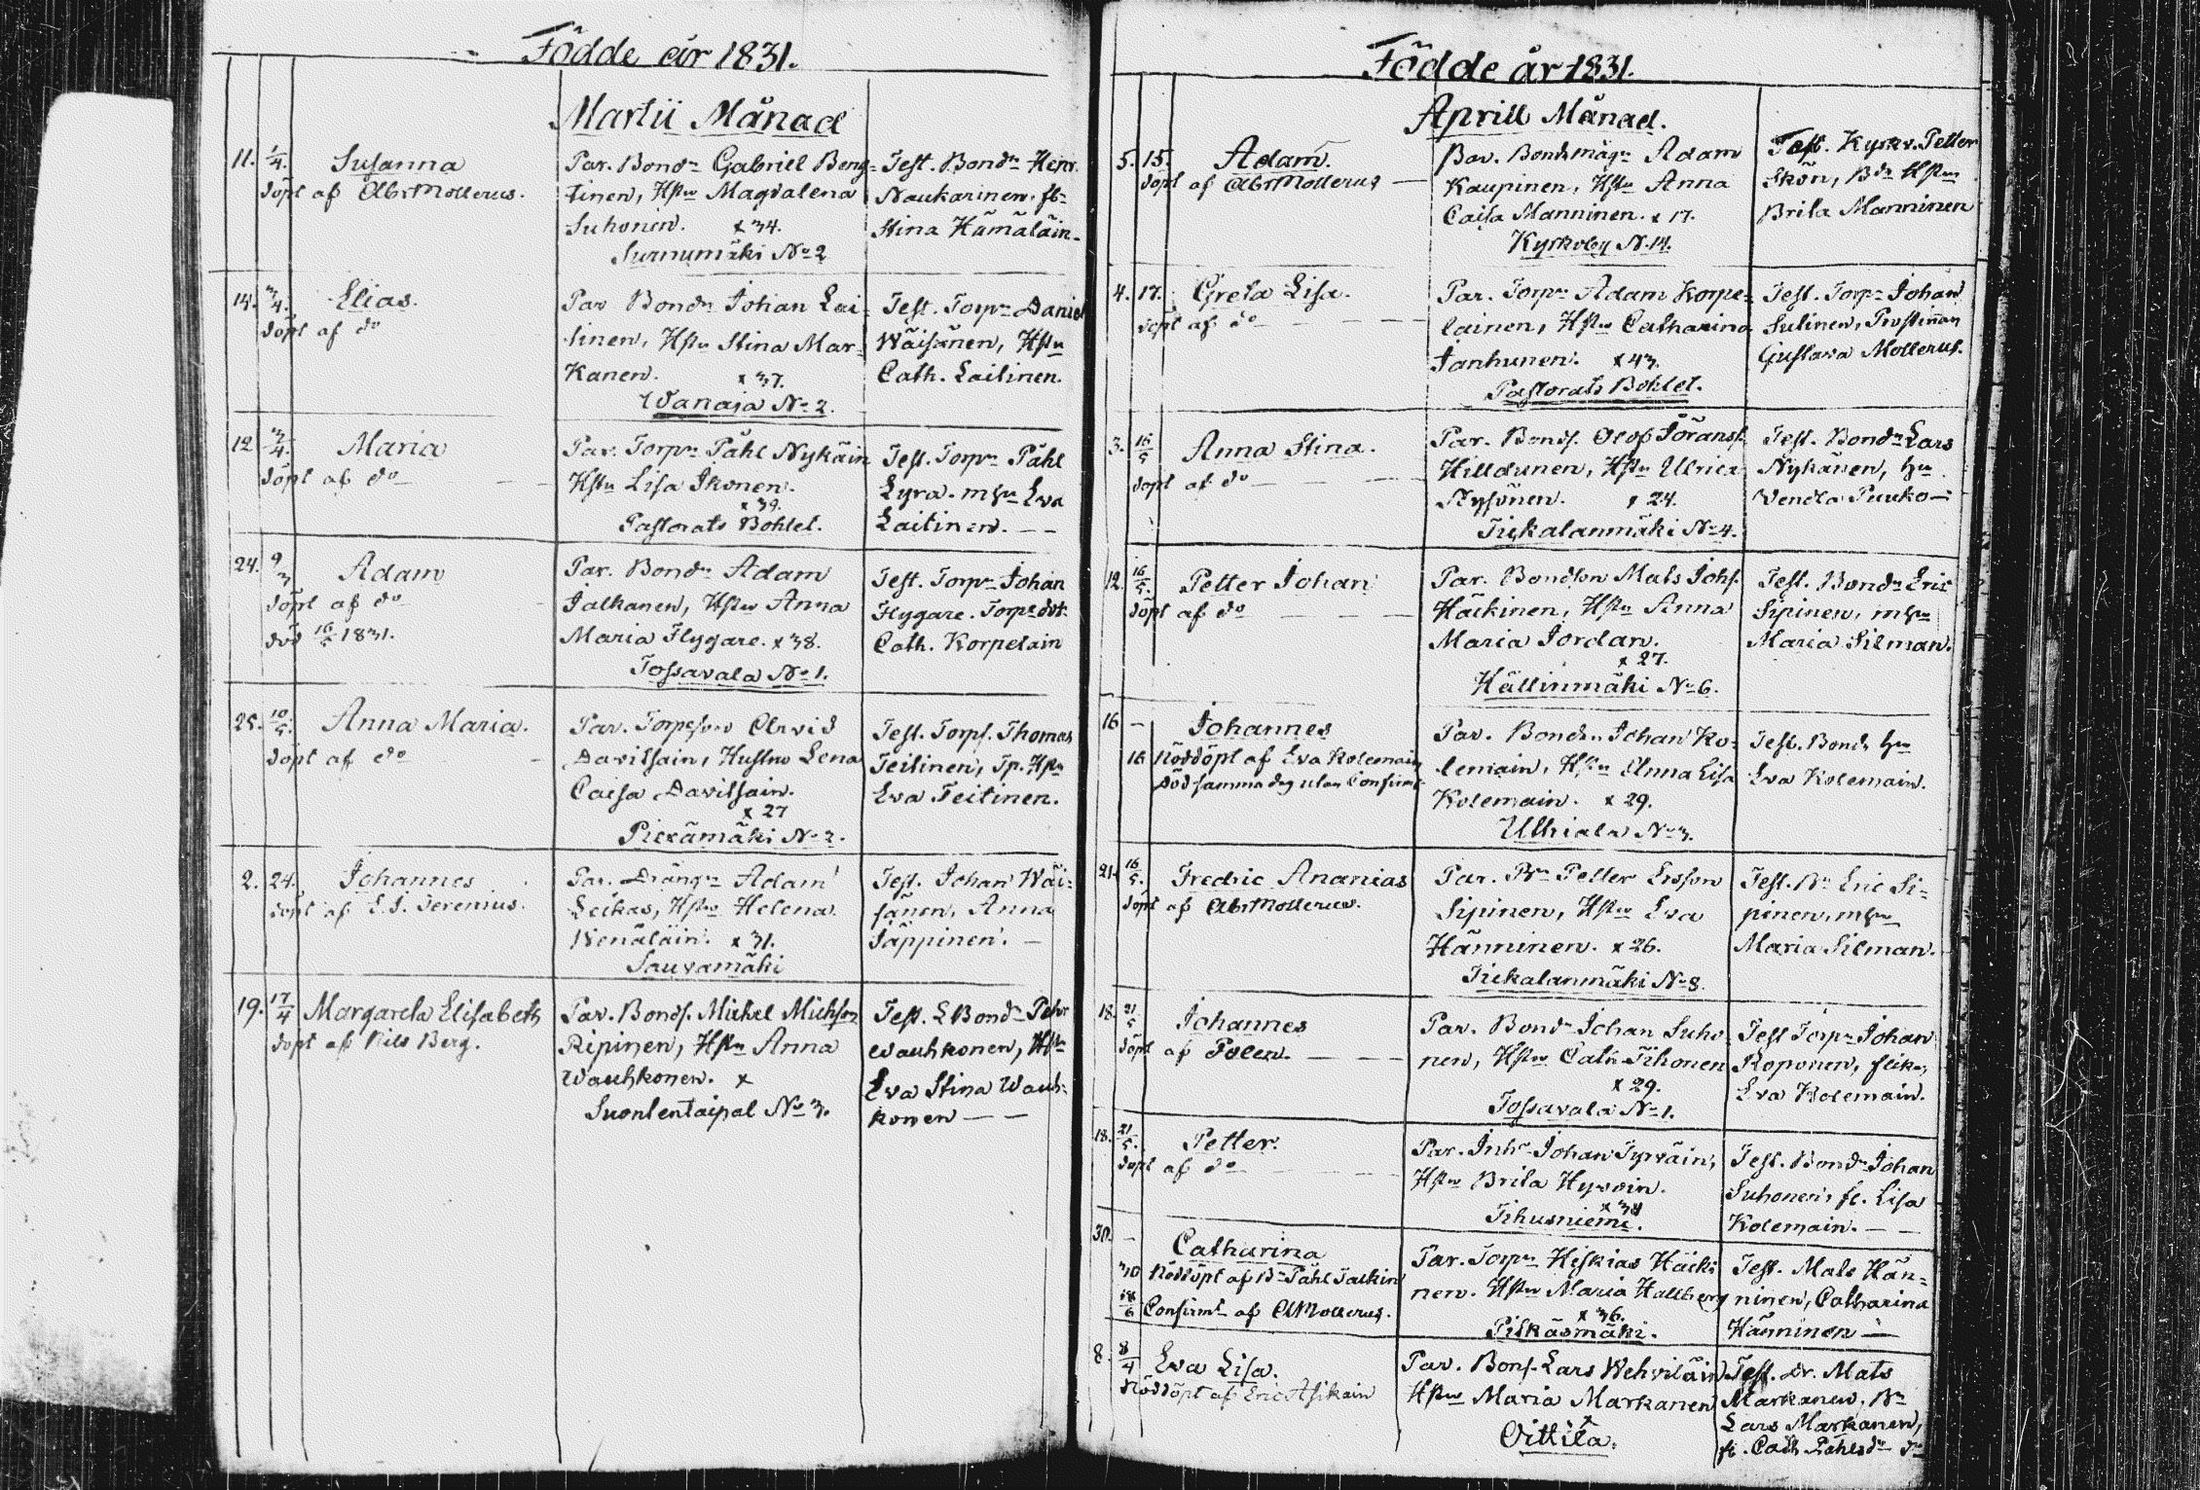 Födde år 1831.
Martii Månad
11. 1/4. Susanna
döpt af Abr Mollerus.
Par. Bondn Gabriel Beng=
tinen, Hstru Magdalena
Suhonen. x 34.
Surnumäki No 2
Test. Bondn Henr.
Naukarinen. fl-
Stina Hämäläin-
14. 3/4. Elias.
döpt af do
Par Bondn Johan Lai-
tinen, Hstru Stina Mar-
Kanen. x 37.
Wanaja No 2.
Test. Torpn Daniel
Wäisänen, Hstru
Cath. Laitinen.
12 3/4. Maria
döpt af do
Par. Torpn Påhl Nykäin
Hstru Lisa Ikonen.
x 39.
Pastorats Bohlet.
Test. Torpn Påhl
Lyra. m hu Eva
Laitinen. - -
24. 9/5 Adam
döpt af do
död 16/5 1831.
Par. Bondn Adam
Jalkanen, Hstru Anna
Maria Flygare. x 38.
Tossavala No 1.
Test. Torpn Johan
Flygare. Torpe dot:
Cath. Korpelain
25. 10/5. Anna Maria.
döpt af do
Par. Torpeson Arvid
Davitsain, Hustru Lena
Caisa Davitsain.
x 27
Piexämäki No 2.
Test. Torps. Thomas
Teitinen, Tp. Hstru
Eva Teitinen.
2. 24. Johannes
döpt af E. J. Jeremius.
Par. Drängn Adam
Leikas, Hstru Helena
Wenäläin. x 31.
Sauvamäki
Test. Johan Wäi-
sänen, Anna
Jäppinen. -
19. 17/4 Margareta Elisabeth
döpt af Nils Berg.
Par. Bonds. Mickel Michsson
Ripinen, Hstru Anna
Wauhkonen. x
Suontentaipal No 3.
Test. L Bondn Pehr
Wauhkonen, Hstru
Eva Stina Wauh-
konen - -
Födde år 1831.
Aprill Månad.
5. 15. Adam.
döpt af Abr Mollerus -
Par. Bondemågn Adam
Kaupinen, Hstru Anna
Caisa Manninen. x 17.
Kyrkoby N. 14.
Test. Kyrkv. Petter
Skön, Bdn Hstru
Brita Manninen
4. 17. Greta Lisa.
döpt af do - - - -
Par. Torpn Adam Korpe-
lainen, Hstru Catharina
Janhunen. x 43.
Pastorats Bohlet.
Test. Torpn Johan
Sutinen, Prostinnan
Gustava Mollerus.
3. 16/5 Anna Stina.
döpt af do - - -
Par. Bonds. Olof Jöranss.
Hilldunen, Hstru Ulrica
x 24.
Tiekalanmäki No 4.
Test. Bondn Lars
Nykänen, hu
Vendla Puuko-
12. 16/5. Petter Johan
döpt af do - - -
Par. Bondson Mats Johs.
Häikinen, Hstru Anna
Maria Jordan.
x 27.
Hällinmäki No 6.
Test. Bondn Eric
Sipinen, m hu
Maria Silman.
16 - Johannes
16 Nöddöpt af Eva Kolemain
död samma dag utan Confirm
Par. Bondn Johan Ko-
lemain, Hstru Anna Lisa
Kolemain. x 29.
Ulhiala No 3.
Test. Bonds hu
Eva Kolemain.
21. 16/5. Fredric Ananias
döpt af Abr Mollerus.
Par. Bn Petter Ersson
Sipinen, Hstru Eva
Hänninen. x 26.
Tiekalanmäki No 8.
Test. Bn Eric Si-
pinen, m hu
Maria Silman.
18. 21/5 Johannes
döpt af Polen. - - -
Par. Bondn Johan Suho-
nen, Hstru Cath Tihonen
x 29.
Tossavala No 1.
Test Torpn Johan
Roponen, flik.
Eva Kolemain.
18. 21/5. Petter.
döpt af do - - -
Par. Inhs Johan Tyrväin,
Hstru Brita Hyvöin.
x 38
Tihusniemi.
Test. Bondn Johan
Suhonen, fl. Lisa
Kolemain. - -
30. - Catharina
30 Nöddöpt af Bn Påhl Jackin
18/6 Confirmt af AMollerus.
Par. Torpn Hiskias Häiki
nen. Hstru Maria Hallberg
x 36.
Pitkäsmäki.
Test. Mats Hän-
ninen, Catharina
Hänninen -
8. 8/4 Eva Lisa.
Nöddöpt af Eric Asikain
Par. Bons. Lars Wehviläin
Hstru Maria Markanen
x
Oittila.
Test. Dr. Mats
Markanen, Bn
Lars Markanen,
fl. Cath Påhlsdr do